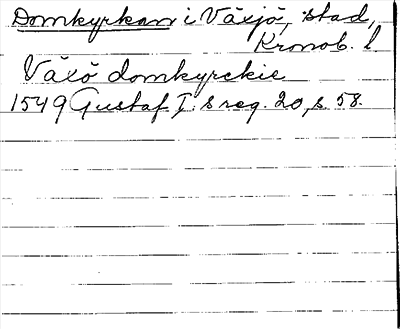 Domkyrkan i Växjö, stad,
Kronob. l
Växö domkyrckie
1549 Gustaf I:s reg. 20, s. 58.